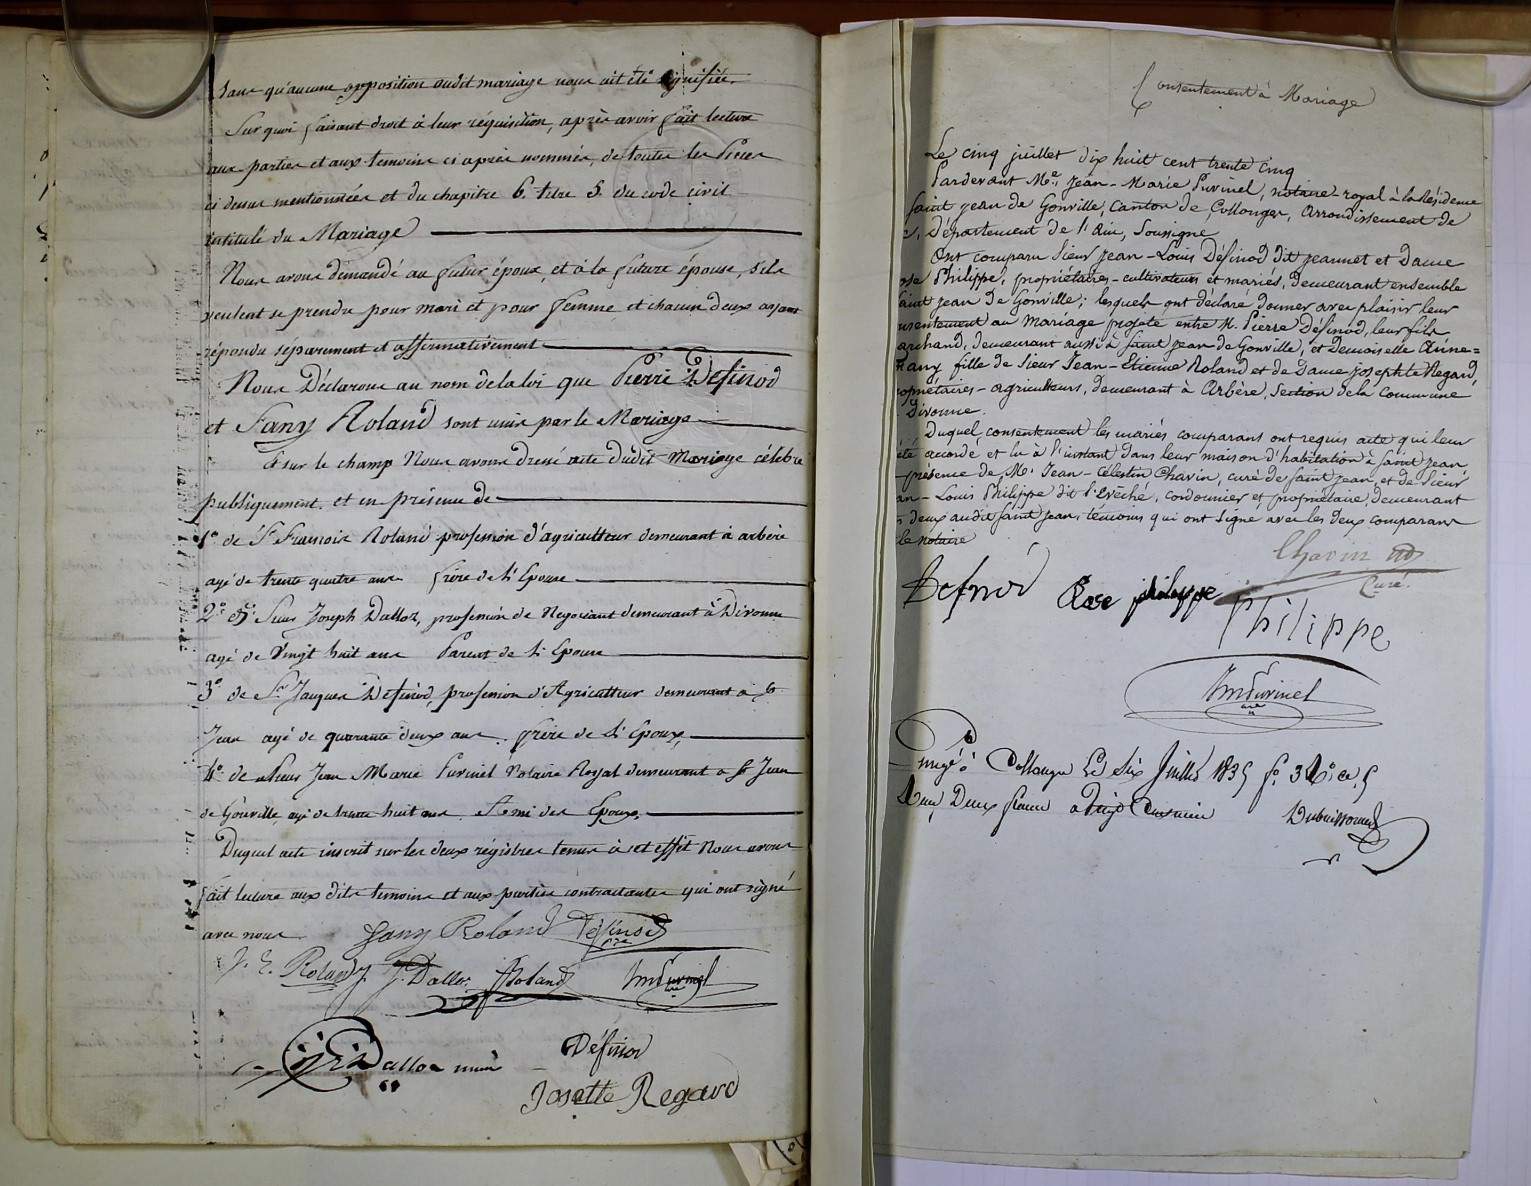 sans qu'aucune opposition audit mariage nous ait été signifiée.
Sur quoi faisant droit à leur réquisition, après avoir fait lecture
aux parties et aux temoins ci après nommés, de toutes les Pièces
ci dessus mentionnées et du chapitre 6. titre 5. du code civil
intitulé du Mariage
Nous avons demandé au futur époux, et à la future épouse, s'ils
veulent se prendre pour mari et pour femme et chacun deux ayant
répondu séparement et affirmativement
Nous Déclarons au nom de la loi que Pierre Définod
et Fany Roland sont unis par le Mariage
Et sur le champ Nous avons dressé acte dudit Mariage célébré
publiquement, et en présence de
1º de Sr François Roland profession d'agriculteur demeurant à arbère
agé de trente quatre ans frère de l'Epouse
2º de Sieur Joseph Dalloz, profession de Negociant demeurant à Divonne
agé de Vingt huit ans Parent de l'Epouse
3º de Sr Jaques Definod, profession d'Agriculteur demeurant à St
Jean agé de quarante deux ans. frère de l'Epoux,
4º de Sieur Jean Marie Puvinel Notaire Royal demeurant à St Jean
de Gonville agé de trente huit ans. Ami des Epoux,
Duquel acte inscrit sur les deux régistres tenus à cet effet Nous avons
fait lecture aux dits temoins et aux parties contractantes qui ont signé
avec nous Fany Roland Définod
J. E. Roland J. Dalloz Roland JmPuvinel
Dalloz maire Définod
Josette Regard
Consentement à Mariage
Le cinq juillet dix huit cent trente cinq
Pardevant Me. Jean-Marie Puvinel, notaire royal à la Résidence
Saint jean de Gonville, Canton de Collonges, Arrondissement de
Département de l'Ain, Soussigné
Ont comparu Sieur Jean-Louis Définod dit Jeannet et Dame
Philippe, propriétaires-cultivateurs et mariés, demeurant ensemble
Saint jean de Gonville; lesquels ont déclaré donner avec plaisir leur
consentement au Mariage projeté entre M. Pierre Définod, leur fils
archand, demeurant aussi à Saint Jean de Gonville, et Demoiselle Aime=
Fany fille de Sieur Jean-Etienne Roland et de Dame Josephte Regard,
propriétaires-agriculteurs, demeurant à Arbère, Section de la Commune
Divonne.
Duquel consentement les mariés comparans ont requis acte qui leur
été accordé et lu à l'instant dans leur maison d'habitation à Saint Jean
présence de Mr. Jean-Célestin Chavin, curé de Saint Jean, et de Sieur
an-Louis Philippe dit l'Evêché, cordonnier et propriétaire, demeurant
deux audit Saint Jean, témoins qui ont signé avec les deux comparans
le notaire
Chavin
Curé.
Defnod Rose philippe
Philippe
JmPuvinel
à Collonges Le Six Juillet 1835 fo. 3
Deux francs Dubuisson